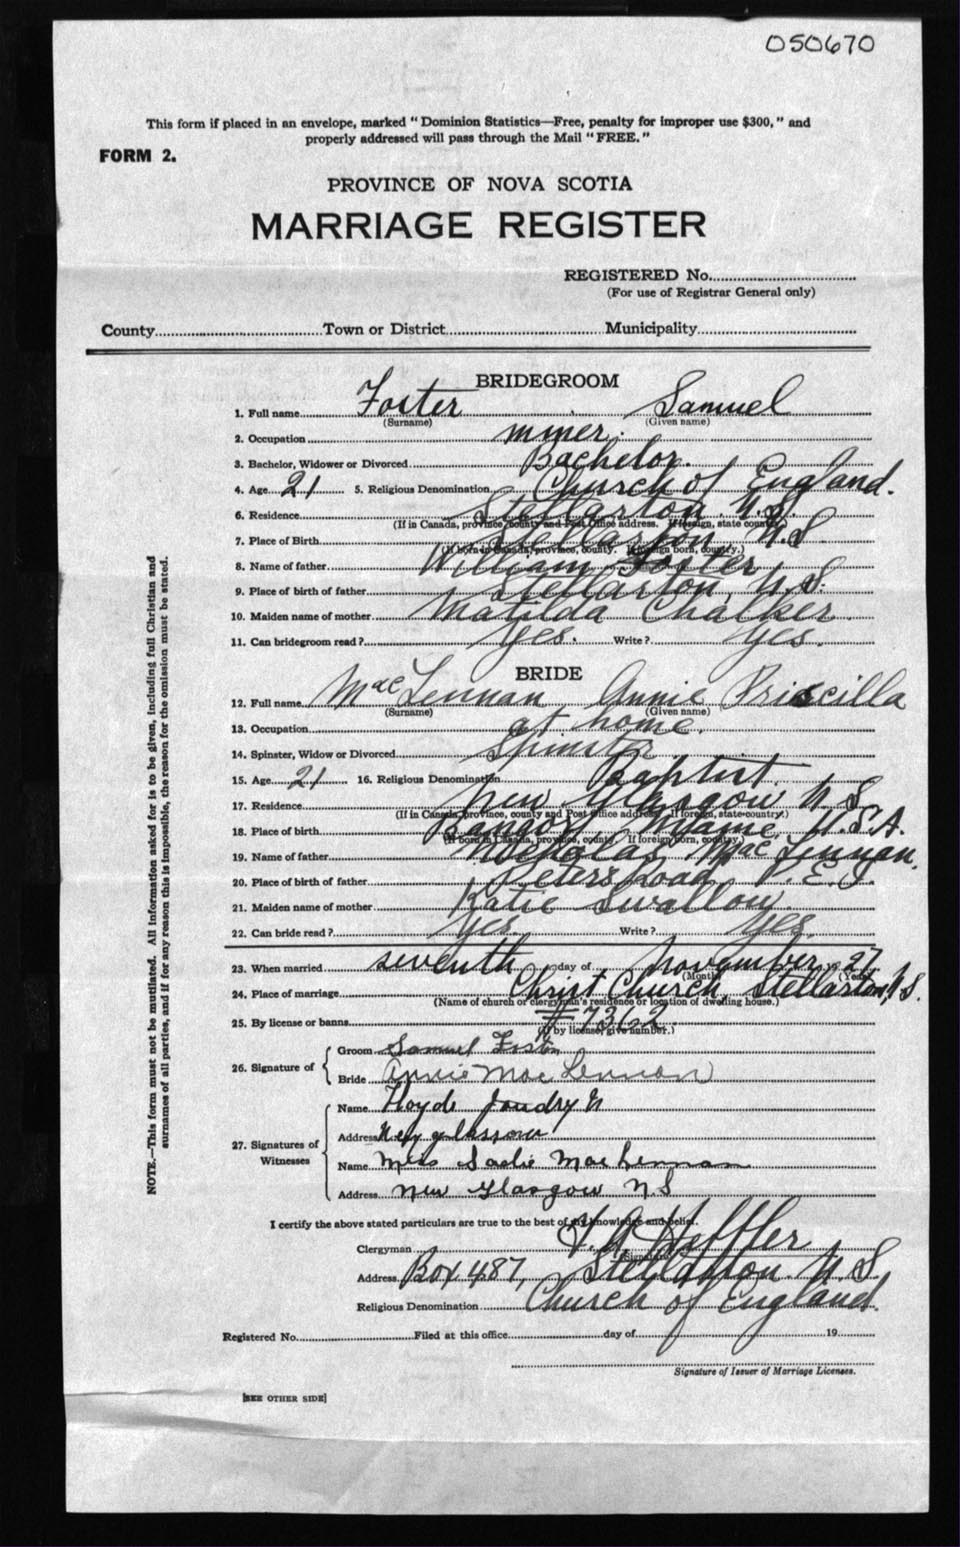 050670
This form if placed in an envelope, marked "Dominion Statistics—Free, penalty for improper use $300," and
properly addressed will pass through the Mail "FREE."
FORM 2.
PROVINCE OF NOVA SCOTIA
MARRIAGE REGISTER
REGISTERED No.
(For use of Registrar General only)
County Town or District Municipality
BRIDEGROOM
1. Full name Foster Samuel
(Surname) (Given name)
2. Occupation miner.
3. Bachelor, Widower or Divorced Bachelor.
4. Age 21 5. Religious Denomination Church of England.
6. Residence Stellarton N.S.
(If in Canada, province, county and Post Office address. If foreign, state country.)
7. Place of Birth Stellarton N.S
(If born in Canada, province, county. If foreign born, country.)
8. Name of father William Foster
9. Place of birth of father Stellarton, N.S.
10. Maiden name of mother Matilda Chalker
11. Can bridegroom read? Yes. Write? Yes.
BRIDE
12. Full name MacLennan Annie Priscilla
(Surname) (Given name)
13. Occupation at home.
14. Spinster, Widow or Divorced Spinster
15. Age 21 16. Religious Denomination Baptist
17. Residence New Glasgow N.S
(If in Canada, province, county and Post Office address. If foreign, state country.)
18. Place of birth Bangor, Maine U.S.A.
(If born in Canada, province, county. If foreign born, country.)
19. Name of father Nicholas MacLennan.
20. Place of birth of father Peters Road P.E.I.
21. Maiden name of mother Katie Swallow
22. Can bride read? Yes. Write? Yes.
23. When married seventh day of November 1927
(Month) (Year)
24. Place of marriage Christ Church, Stellarton, N.S.
(Name of church or clergyman's residence or location of dwelling house.)
25. By license or banns #7362
(If by license, give number.)
26. Signature of
Groom Samuel Foster
Bride Annie MacLennan
27. Signatures of Witnesses
Name Floyde
Address New glasgow
Name Miss Sadie MacLennan
Address New Glasgow N.S
I certify the above stated particulars are true to the best of my knowledge and belief.
Clergyman Heffler
(Signature)
Address Box 487, Stellarton N.S
Religious Denomination Church of England.
Registered No. Filed at this office day of 19
Signature of Issuer of Marriage Licenses.
[SEE OTHER SIDE]
NOTE.—This form must not be mutilated. All information asked for is to be given, including full Christian and
surnames of all parties, and if for any reason this is impossible, the reason for the omission must be stated.